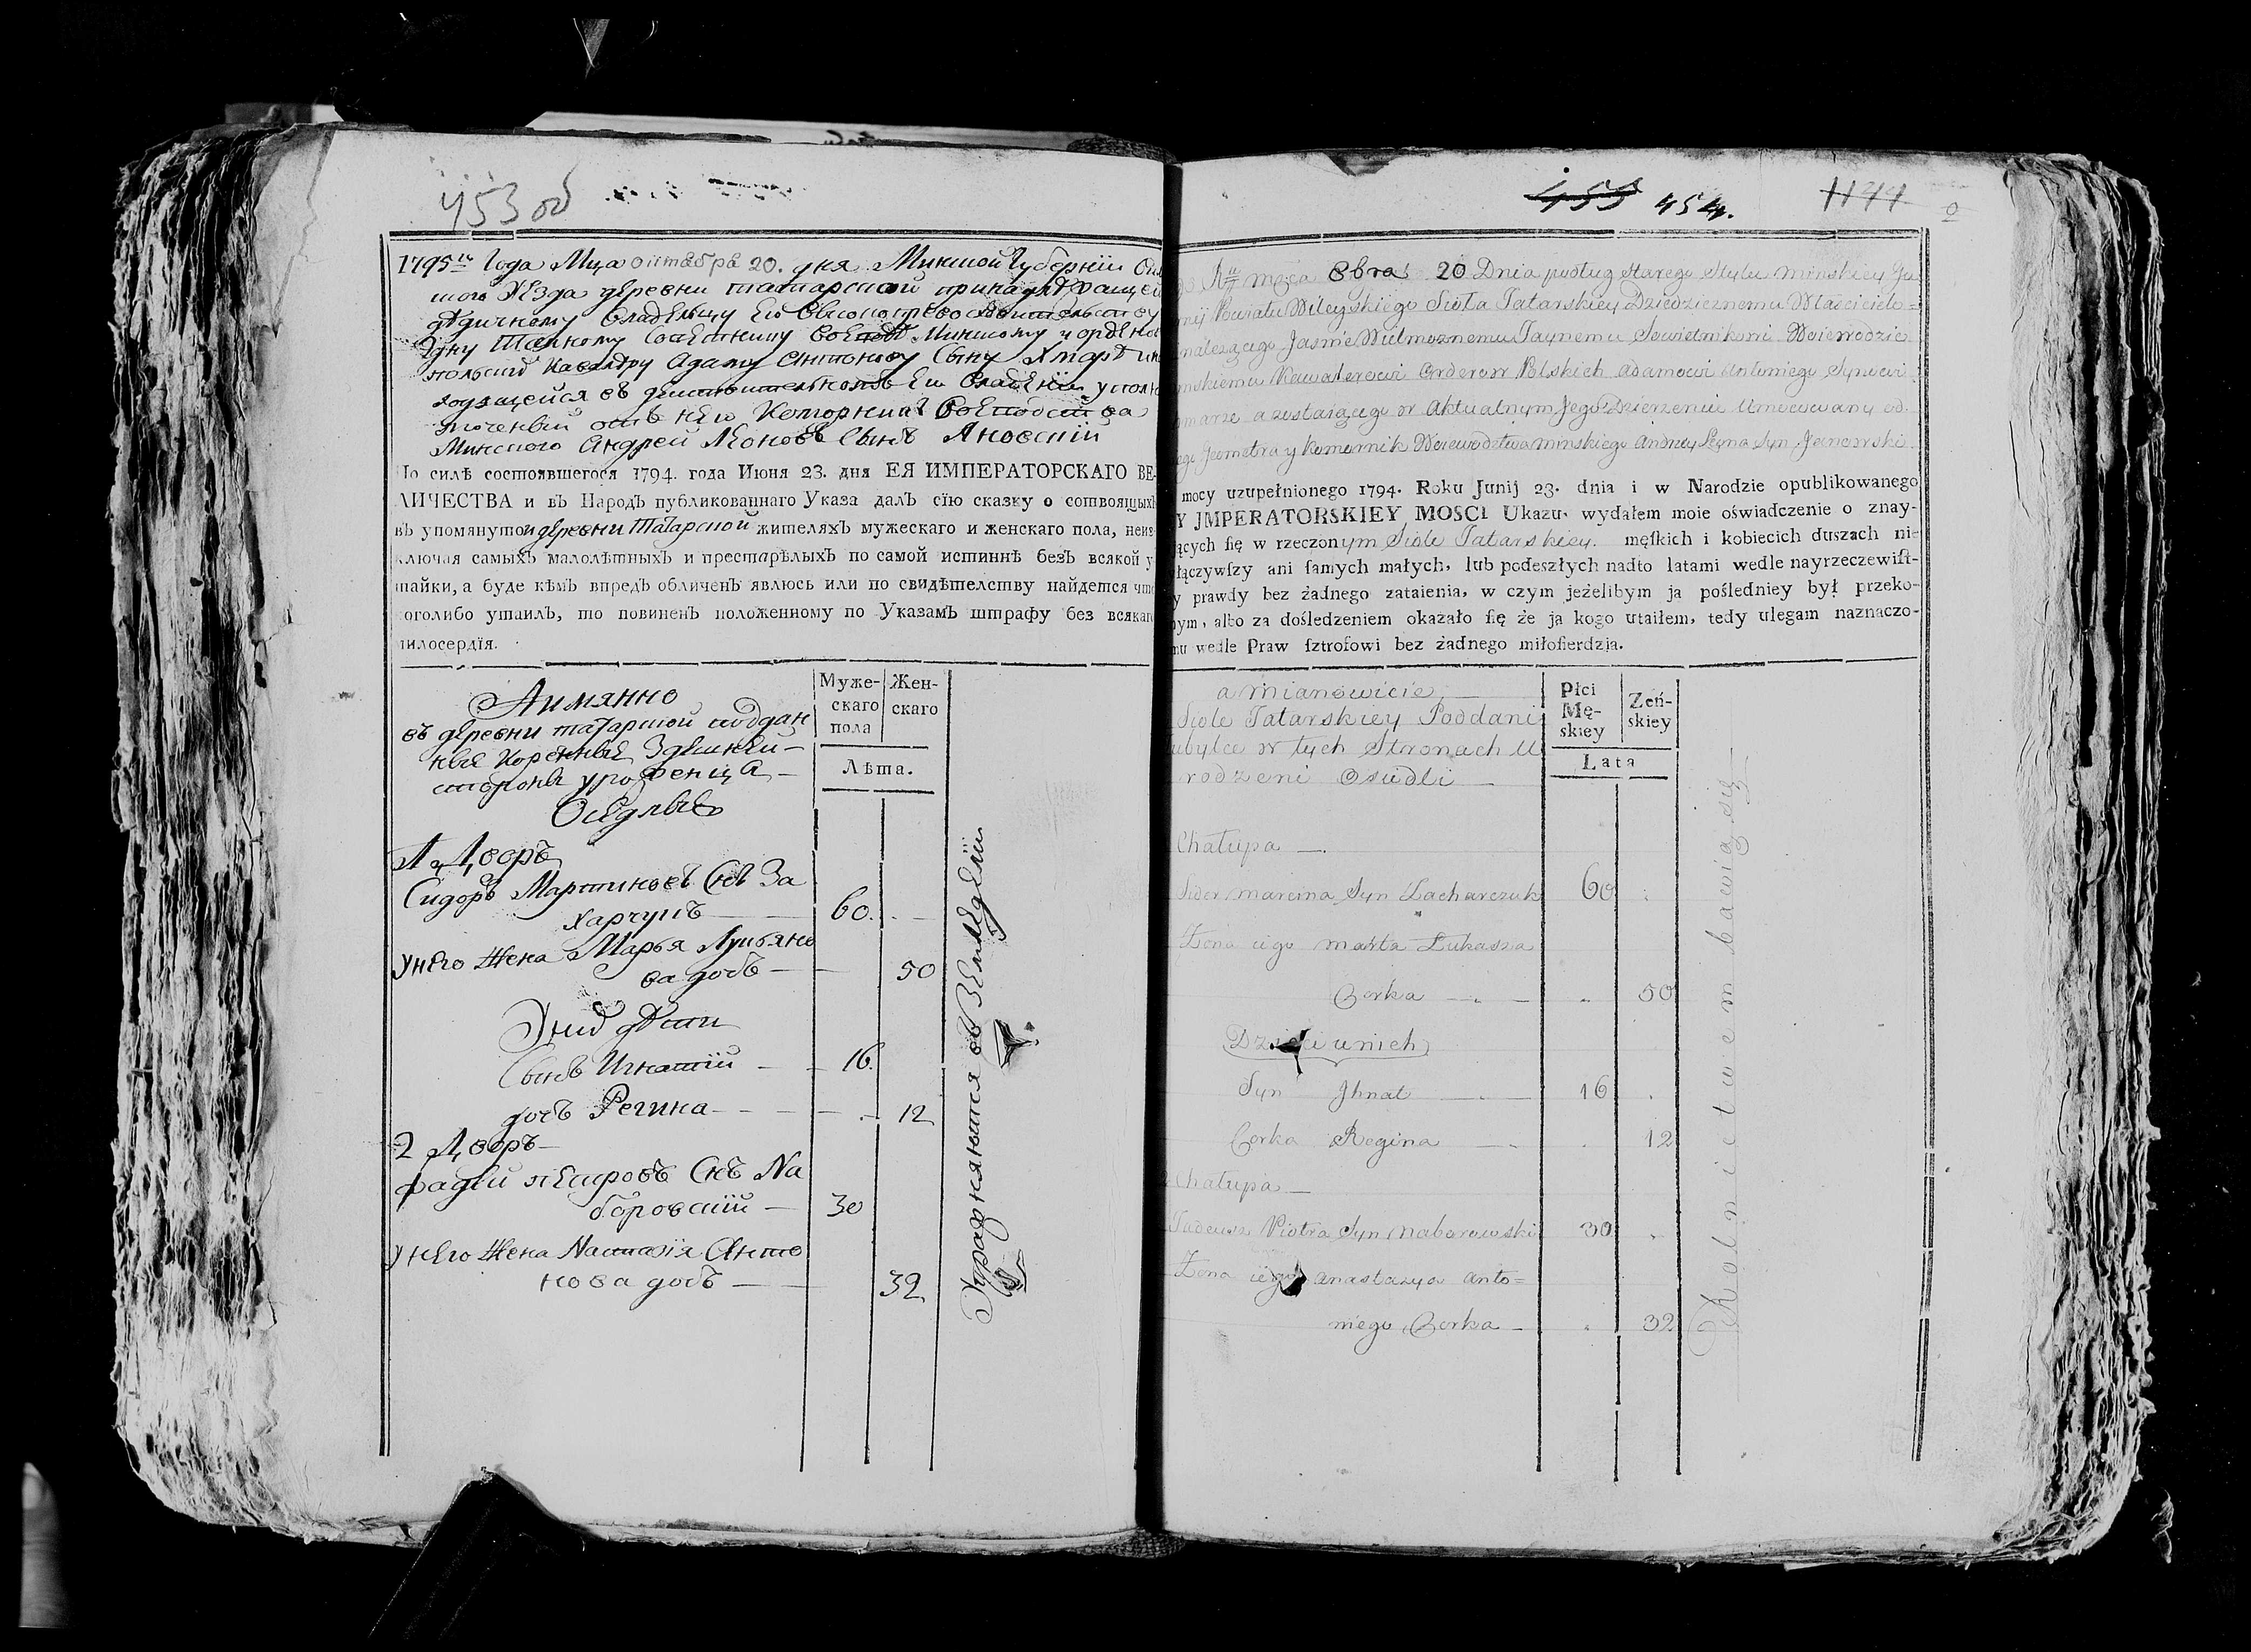 453 об
1795го Года Мца октабра 20. дня Минской Губернїи
ского Уезда деревни татарской принадлѣжащей
дѣдичному владельцу Его Высокопревосходительству
Пну Тайному Советнику Воеводѣ Минскому и орденов
польских Кавалѣру Адаму Антонову Сыну Хмарѣ
ходящейся въ действительномъ Его Владении уполно
моченный отъ него Коморникъ Воеводства
Минского Андрей Леоновъ Сынъ Яновский
По силѣ состоявшегося 1794. года Июня 23. дня ЕЯ ИМПЕРАТОРСКАГО ВЕ-
ЛИЧЕСТВА и въ Народъ публикованнаго Указа далъ сїю сказку о сотвоящыхъ
въ упомянутой деревни Татарской жителяхъ мужескаго и женскаго пола, неис-
ключая самыхъ малолѣтныхъ и престарѣлыхъ по самой истиннѣ безъ всякой у
тайки, а буде кѣмъ впредь обличенъ явлюсь или по свидѣтелству найдется что
коголибо утаилъ, то повиненъ положенному по Указамъ штрафу без всякаго
милосердїя.
Аимянно
въ деревни татарской поддан
ные Коренные Здешней-
стороны уроженца -
Оседлые
Муже-
скаго
пола
Жен-
скаго
Лѣта.
1 Дворъ
Сидоръ Мартиновъ Снъ За
харчукъ 60.
унего жена Марья Лукьяно
ва дочь 50
Уних дѣти
Сынъ Игнатїй 16.
дочь Регина 12
2 Дворъ
фадей петровъ Снъ На
боровскїй 30
унего жена Настазїя Анто
нова дочь 32
Упражняются въ Земледелїи
455 454. 1144
0
Ru msca 8bra 20 Dnia podług starego Stylu Minskiey Gu
nij Powiatu Wileyskiego Sioła Tatarskiey Dziedzicznemu Właściciele=
należącego Jaśnie Wielmoznemu Taynemu Sowietnikowi Woiewodzie
mskiemu Kawalerowi Orderow Polskich Adamowi Antoniego Synowi
omarze a zostaiącego w Aktualnym Jego Dzierzeniu Umocowany od
ego Jeometra y Komornik Woiewodztwa minskiego Andrzey Leona Syn Janowski
mocy uzupełnionego 1794. Roku Junij 23. dnia i w Narodzie opublikowanego
Y JMPERATORSKIEY MOSCI Ukazu, wydałem moie oświadczenie o znay-
iących się w rzeczonym Siole Tatarskiey. męſkich i kobiecich duszach nie
łączywſzy ani ſamych małych, lub podeszłych nadto latami wedle nayrzeczewiſt-
y prawdy bez żadnego zataienia, w czym jeżelibym ja pośledniey był przeko-
nym, albo za dośledzeniem okazało ſię że ja kogo utaiłem, tedy ulegam naznaczo-
mu wedle Praw ſztrofowi bez żadnego miłoſierdzia.
a mianowicie
Siole Tatarskiey Poddani
ubylce w tych Stronach U
rodzeni Osiedli
Płci
Mę-
skiey
Zeń-
skiey
Lata
Chałupa
Sidor Marcina Syn Zacharczuk 60
Zona iego Marta Łukasza
Corka 50
Dzieci u nich
Syn Jhnat 16
Corka Regina 12
2 Chałupa
Tadeusz Piotra Syn Naborowski 30
Zona iego Anastazya Anto=
niego Corka 32
Rolnictwem bawią się